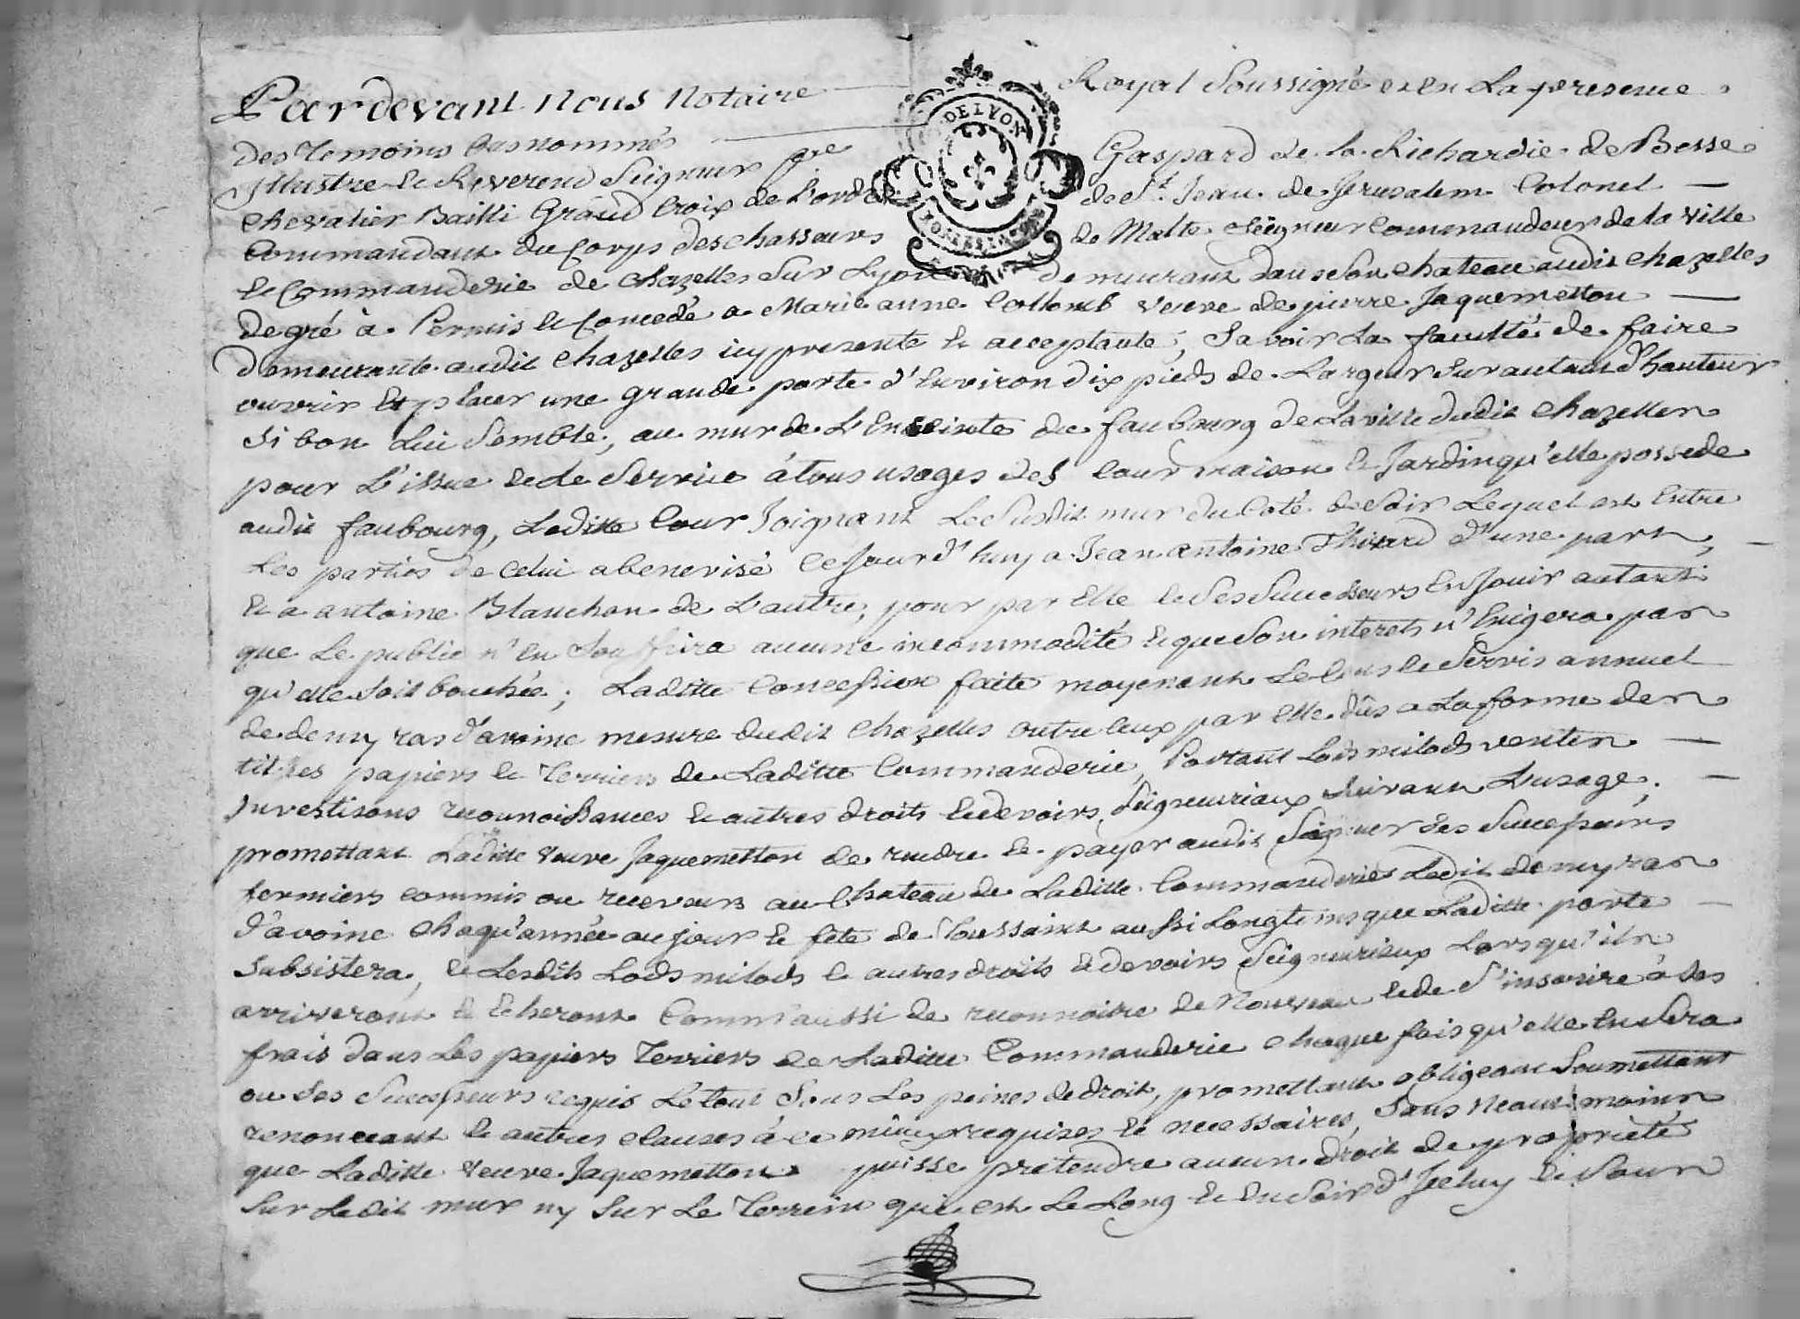 Pardevant nous Notaire Royal Soussigné et en La presence
DE LYON
des Temoins bas nommés
Illustre et Reverend Seigneur fre Gaspard de la Richardie de Besse
chevalier Bailli Grand Croix de L'ordre de St. Jean de Jerusalem Colonel
Commandant du Corps des chasseurs de Malte Seigneur Commandeur de la Ville
et Commanderie de Chazelles Sur Lyon demeurant dans son chateau audit chazelles
de gré à Permis et Concedé a Marie anne Collomb veuve de pierre Jaquemetton
demeurante audit chazelles icy presente et acceptante, Savoir La faculté de faire
ouvrir Et placer une grande porte d'Environ dix pieds de Largeur Sur autant d'hauteur
Si bon Lui Semble, au mur de L'Enceinte du faubourg de La ville dudit chazelles
pour L'issue et de Service à tous usages des cour maison et Jardin qu'elle possede
audit faubourg, Laditte Cour Joignant Le Susdit mur du Coté de Soir Lequel est Entre
Les parties de celui abenevisé Cejourd'huy a Jean antoine Thivard d'une part,
et a antoine Blanchon de L'autre, pour par Elle et Ses Successeurs En Jouir autant
que Le public n'en Souffrira aucune incommodité et que Son interets n'Exigera pas
qu'elle Soit bouchée; Laditte Concession faite moyenant Le Cens et Servis annuel
de demy ras d'avoine mesure dudit Chazelles outre Ceux par Elle dûs a La forme des
titres papiers et Terriers de Laditte Commanderie, Portant Lods milods ventes
Investisons reconnoissances et autres droits et devoirs Seigneuriaux Suivant L'usage;
promettant Laditte Veuve Jaquemetton de rendre et payer audit Seigneur Ses Successeurs
fermiers commis ou receveurs au Chateau de Laditte Commanderie Ledit demy ras
d'avoine chaqu'année au jour et fête de Toussaint aussi Longtems que Laditte porte
Subsistera, et Lesdits Lods milods et autres droits et devoirs Seigneuriaux Lorsqu'ils
arriveront et Echeront Comm'aussi de reconnoitre de Nouveau et de S'inscrire à Ses
frais dans Les papiers Terriers de Laditte Commanderie chaque fois qu'elle En Sera
ou Ses Successeurs requis Le tout Sous Les peines de droit, promettant obligeant Soumettant
renonceant et autres clauses à ce mieux requises et necessaires, Sans Neant moins
que Laditte Veuve Jaquemetton puisse pretendre aucun droit de proprieté
Sur Ledit mur ny Sur Le Terrein qui est Le Long et En Soir d'Jceluy et Sans